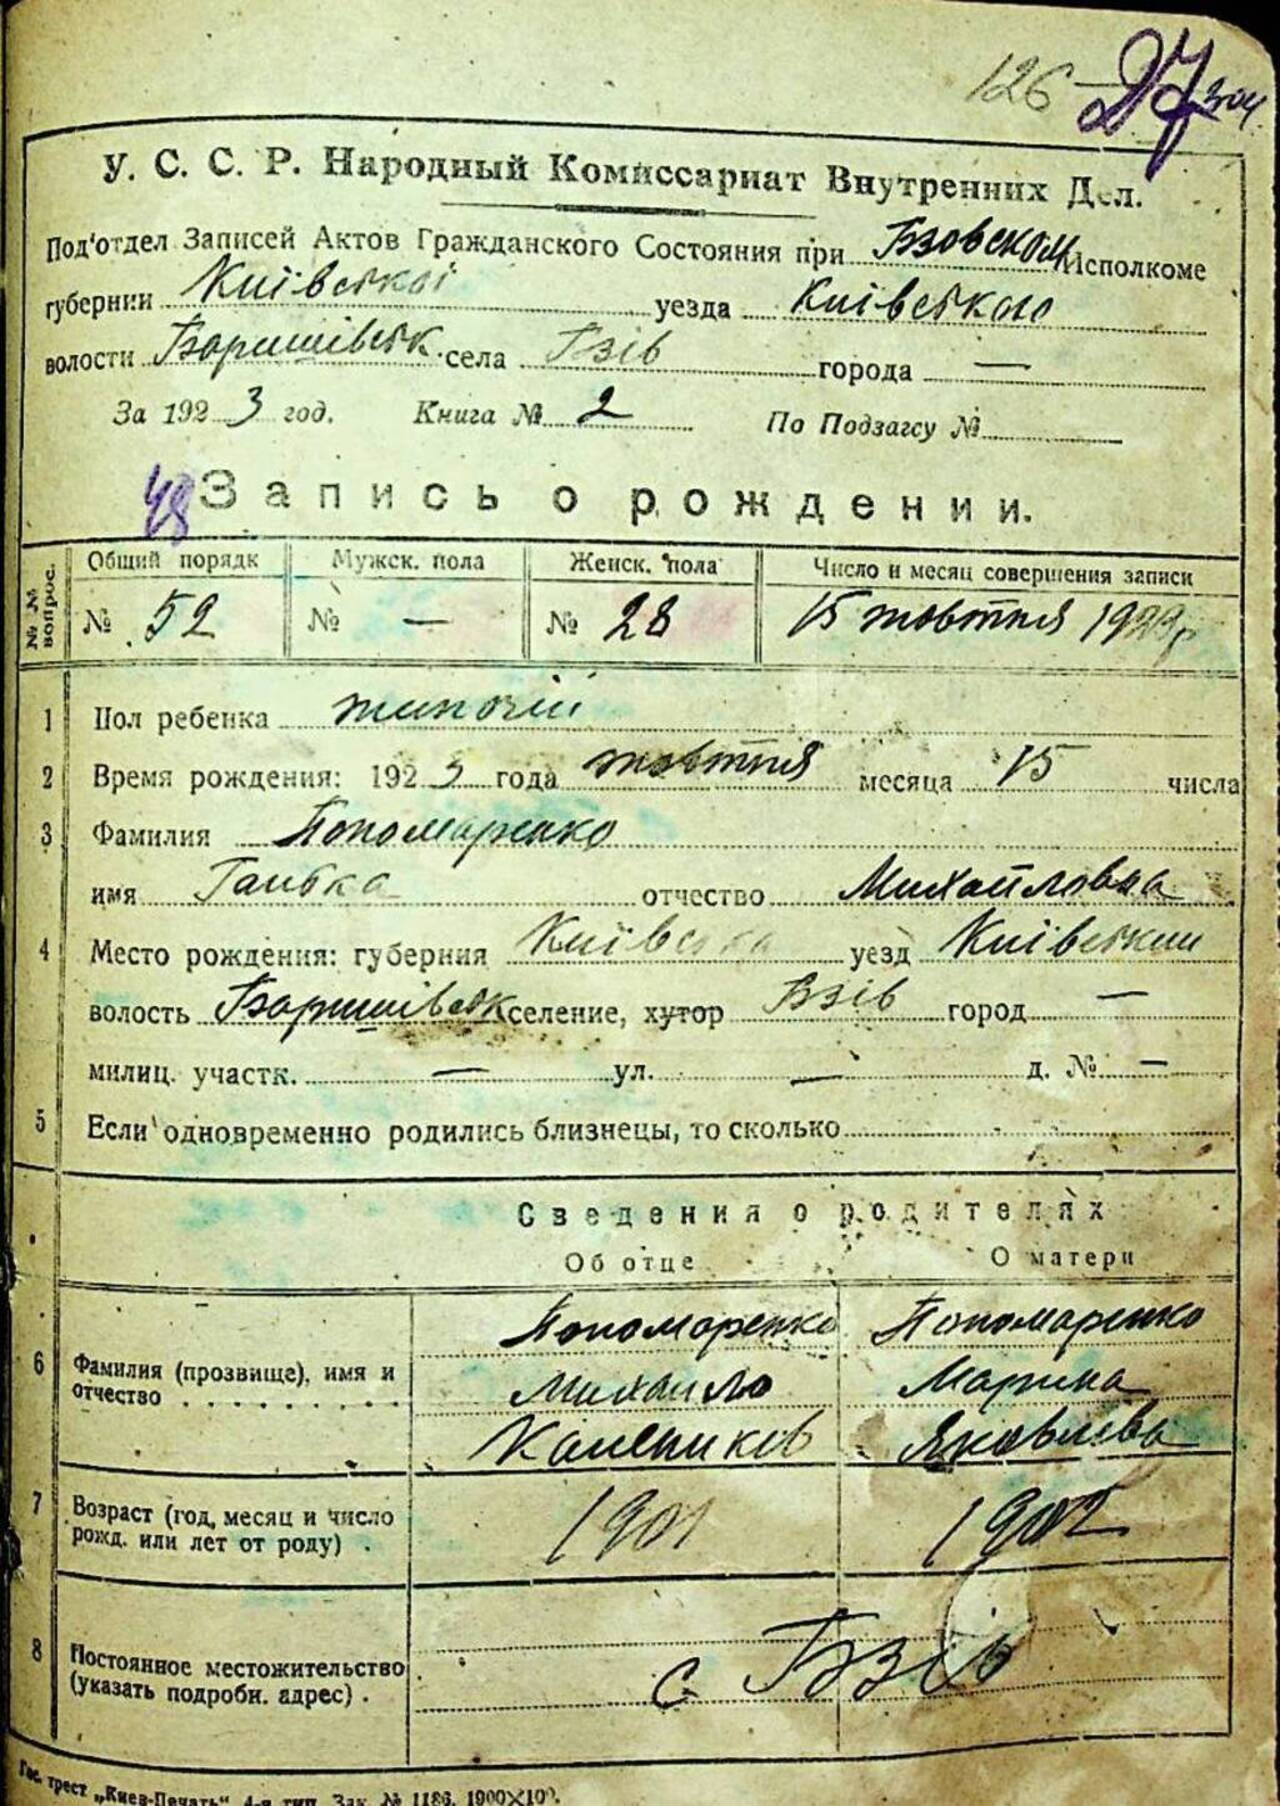 126 27 зон.
У. С. С. Р. Народный Комиссариат Внутренних Дел.
Под'отдел Записей Актов Гражданского Состояния при Бзовском Исполкоме
губернии Київської уезда Київського
волости Баришівськ. села Бзів города —
За 1923 год. Книга № 2 По Подзагсу №
48 Запись о рождении.
№ № вопрос. Общий порядк Мужск. пола Женск. пола Число и месяц совершения записи
№ 52 № — № 28 15 жовтня 1923 р
1 Пол ребенка жиночій
2 Время рождения: 1923 года жовтня месяца 15 числа
3 Фамилия Пономаренко
имя Ганька отчество Михайловна
4 Место рождения: губерния Київська уезд Київський
волость Баришівськ селение, хутор Бзів город —
милиц. участк. — ул. — д. № —
5 Если одновременно родились близнецы, то сколько
Сведения о родителях
Об отце О матери
Пономоренко Пономаренко
6 Фамилия (прозвище), имя и Михайло Марина
отчество . . . . . . . . . . Калеников Яковлева
7 Возраст (год, месяц и число 1901 1902
рожд. или лет от роду) .
8 Постоянное местожительство с Бзів
(указать подробн. адрес) .
Гос. трест „Киев-Печать“ 4-я тип. Зак. № 1186. 1900×100.